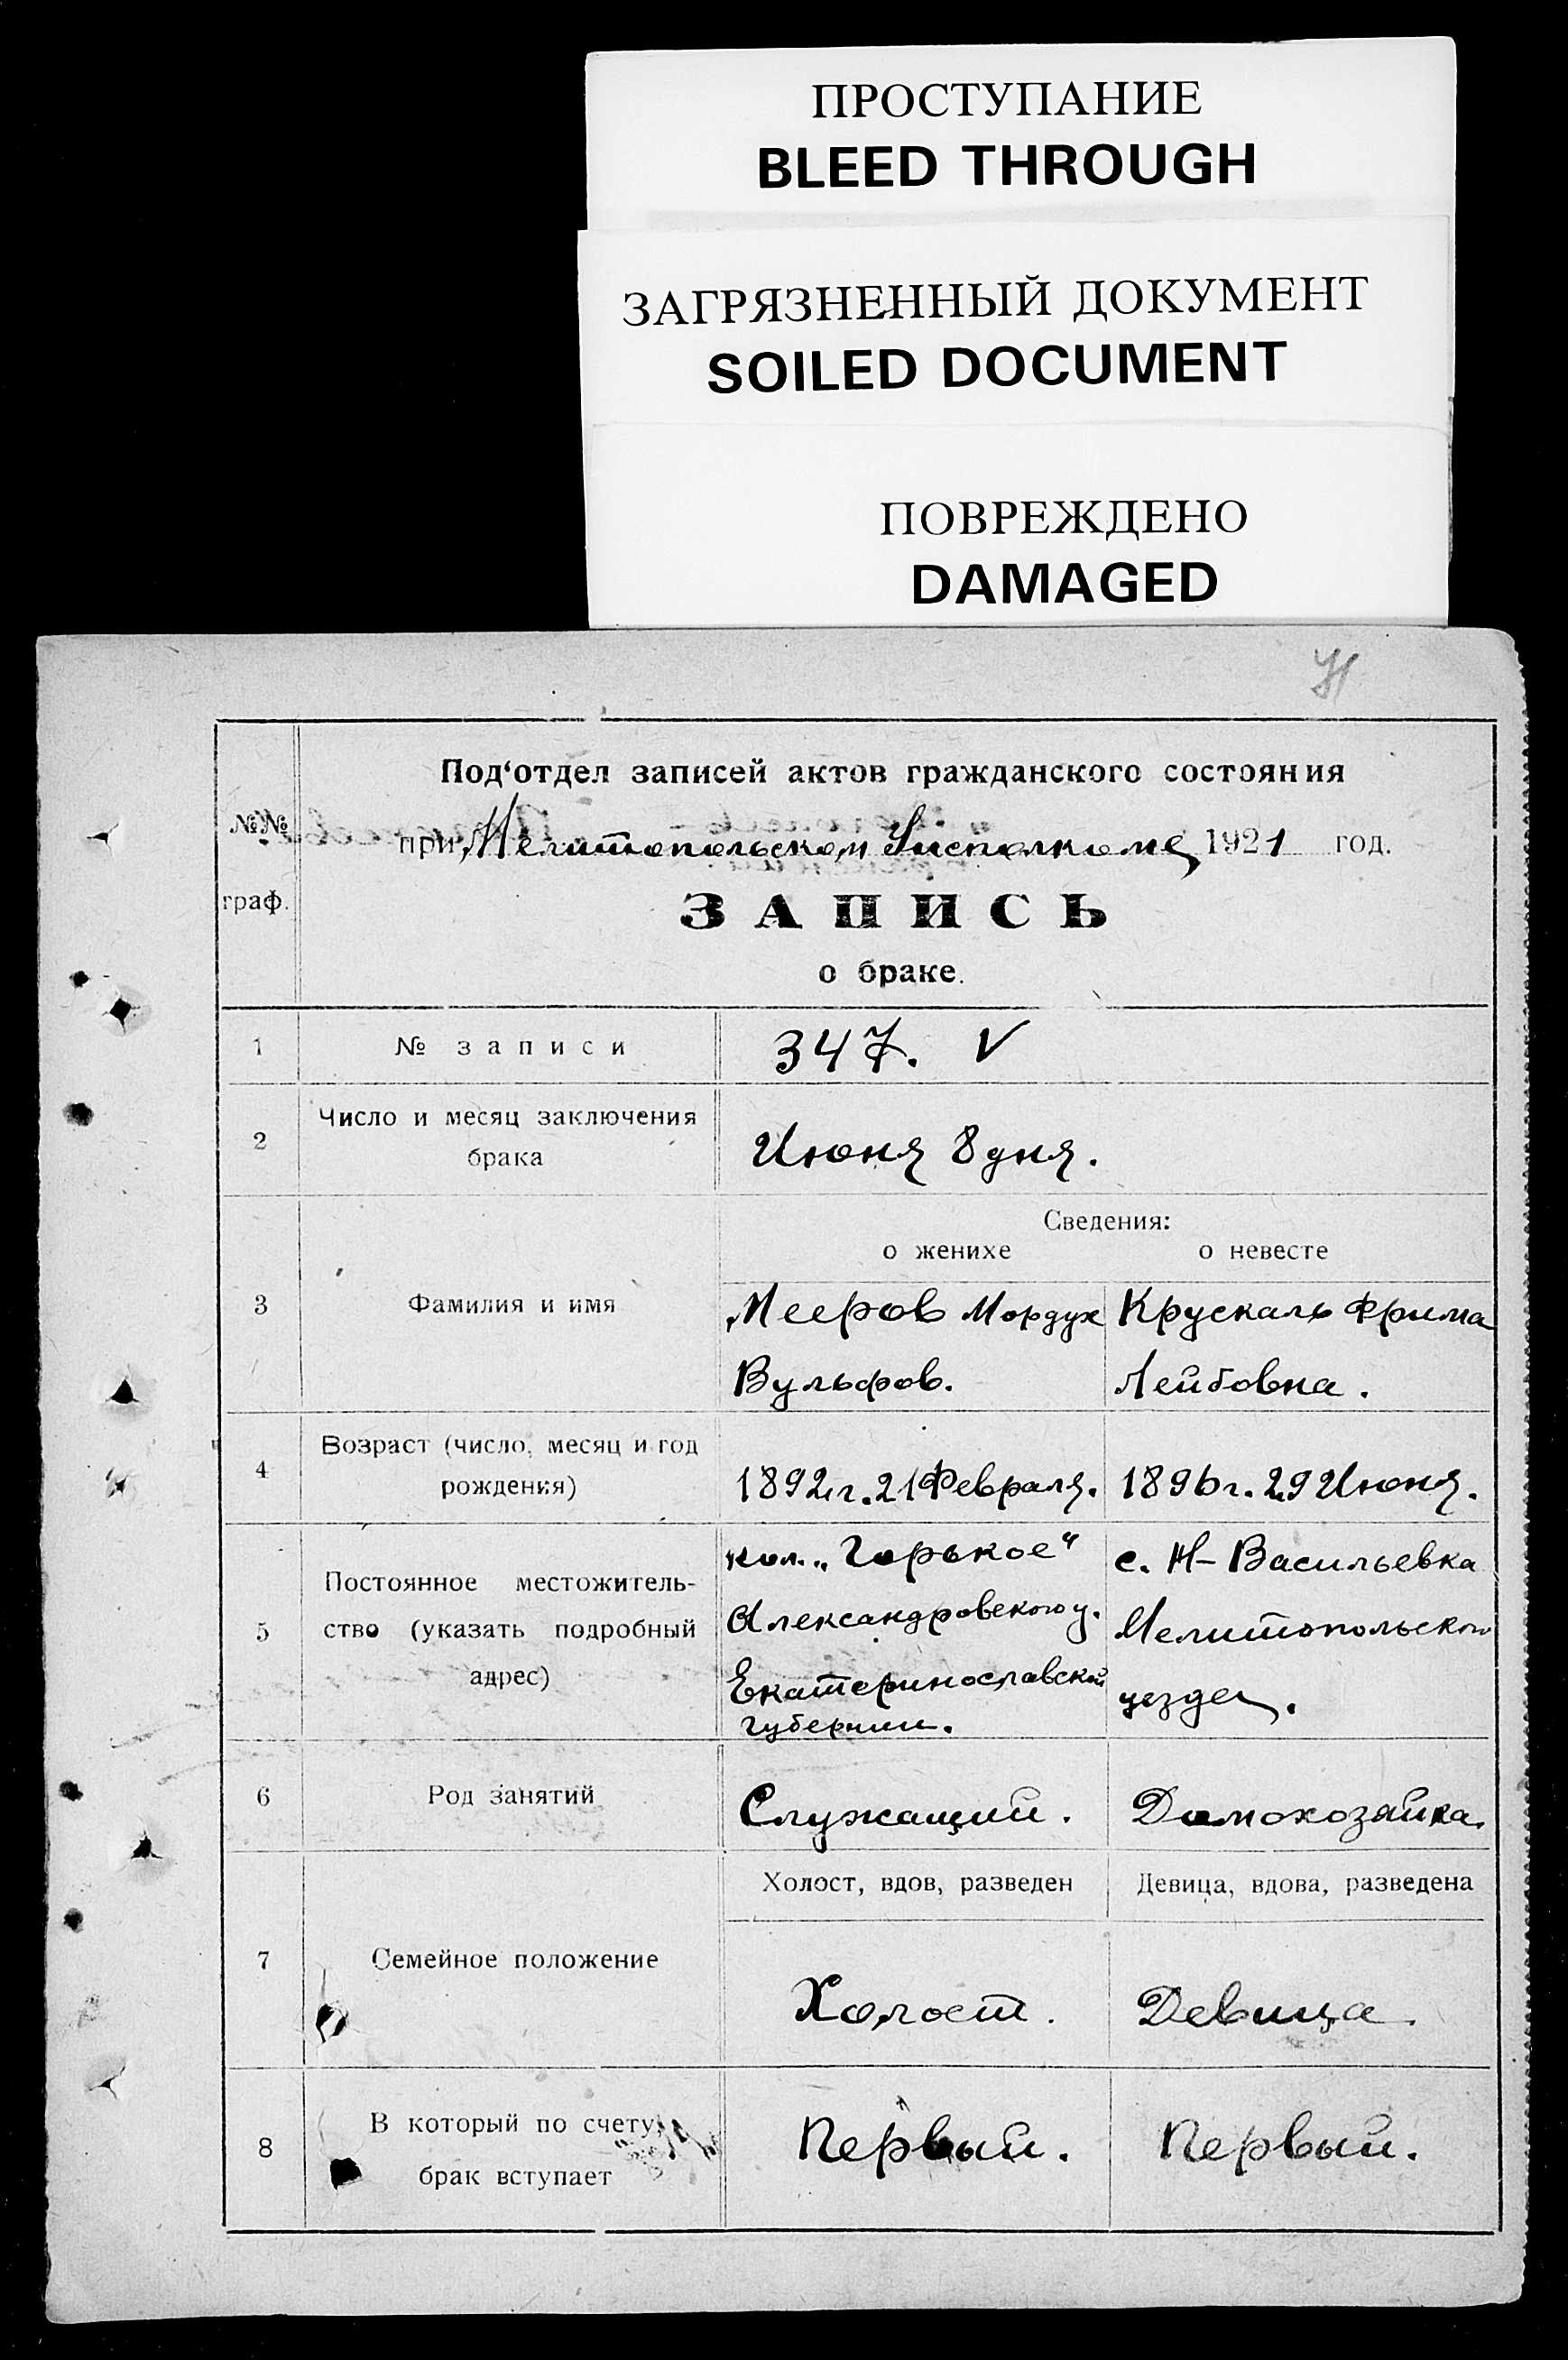 ПРОСТУПАНИЕ
BLEED THROUGH
ЗАГРЯЗНЕННЫЙ ДОКУМЕНТ
SOILED DOCUMENT
ПОВРЕЖДЕНО
DAMAGED
№№ граф.
Под‘отдел записей актов гражданского состояния
при Мелитопольском Уисполкоме 1921 год.
ЗАПИСЬ
о браке.
1 № записи 347. V
2 Число и месяц заключения
брака
Июня 8 дня.
Сведения:
о женихе о невесте
3 Фамилия и имя
Мееров Мордух
Вульфов.
Крускаль Фрима
Лейбовна.
4 Возраст (число, месяц и год
рождения)
1892 г. 21 Февраля. 1896 г. 29 Июня.
5 Постоянное местожитель-
ство (указать подробный
адрес)
кол. „Горькое“
Александровского у.
Екатеринославской
губернии.
с. Н-Васильевка
Мелитопольского
уезда.
6 Род занятий Служащий. Домохозяйка.
Холост, вдов, разведен Девица, вдова, разведена
7 Семейное положение Холост. Девица.
8 В который по счету
брак вступает
Первый. Первый.